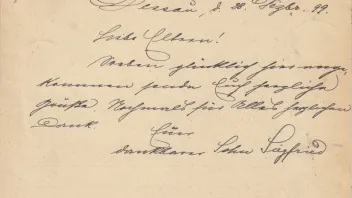 Dessau, d. 28. Dezbr. 99.
Liebe Eltern!
Soeben glücklich hier ange-
kommen sende Euch herzliche
Grüße. Nochmals für Alles herzlichen
Dank.
Euer
dankbarer Sohn Siegfried